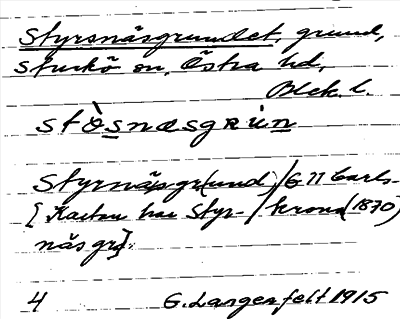 Styrsnäsgrundet, grund,
Sturkö sn, Östra hd,
Blek. l.
stø̀snæsgrun
Styrnäsgr(und) / G 11 Carls-
[Kartan har Styr- / krona (1870)
näsgr].
4 G. Langenfelt 1915